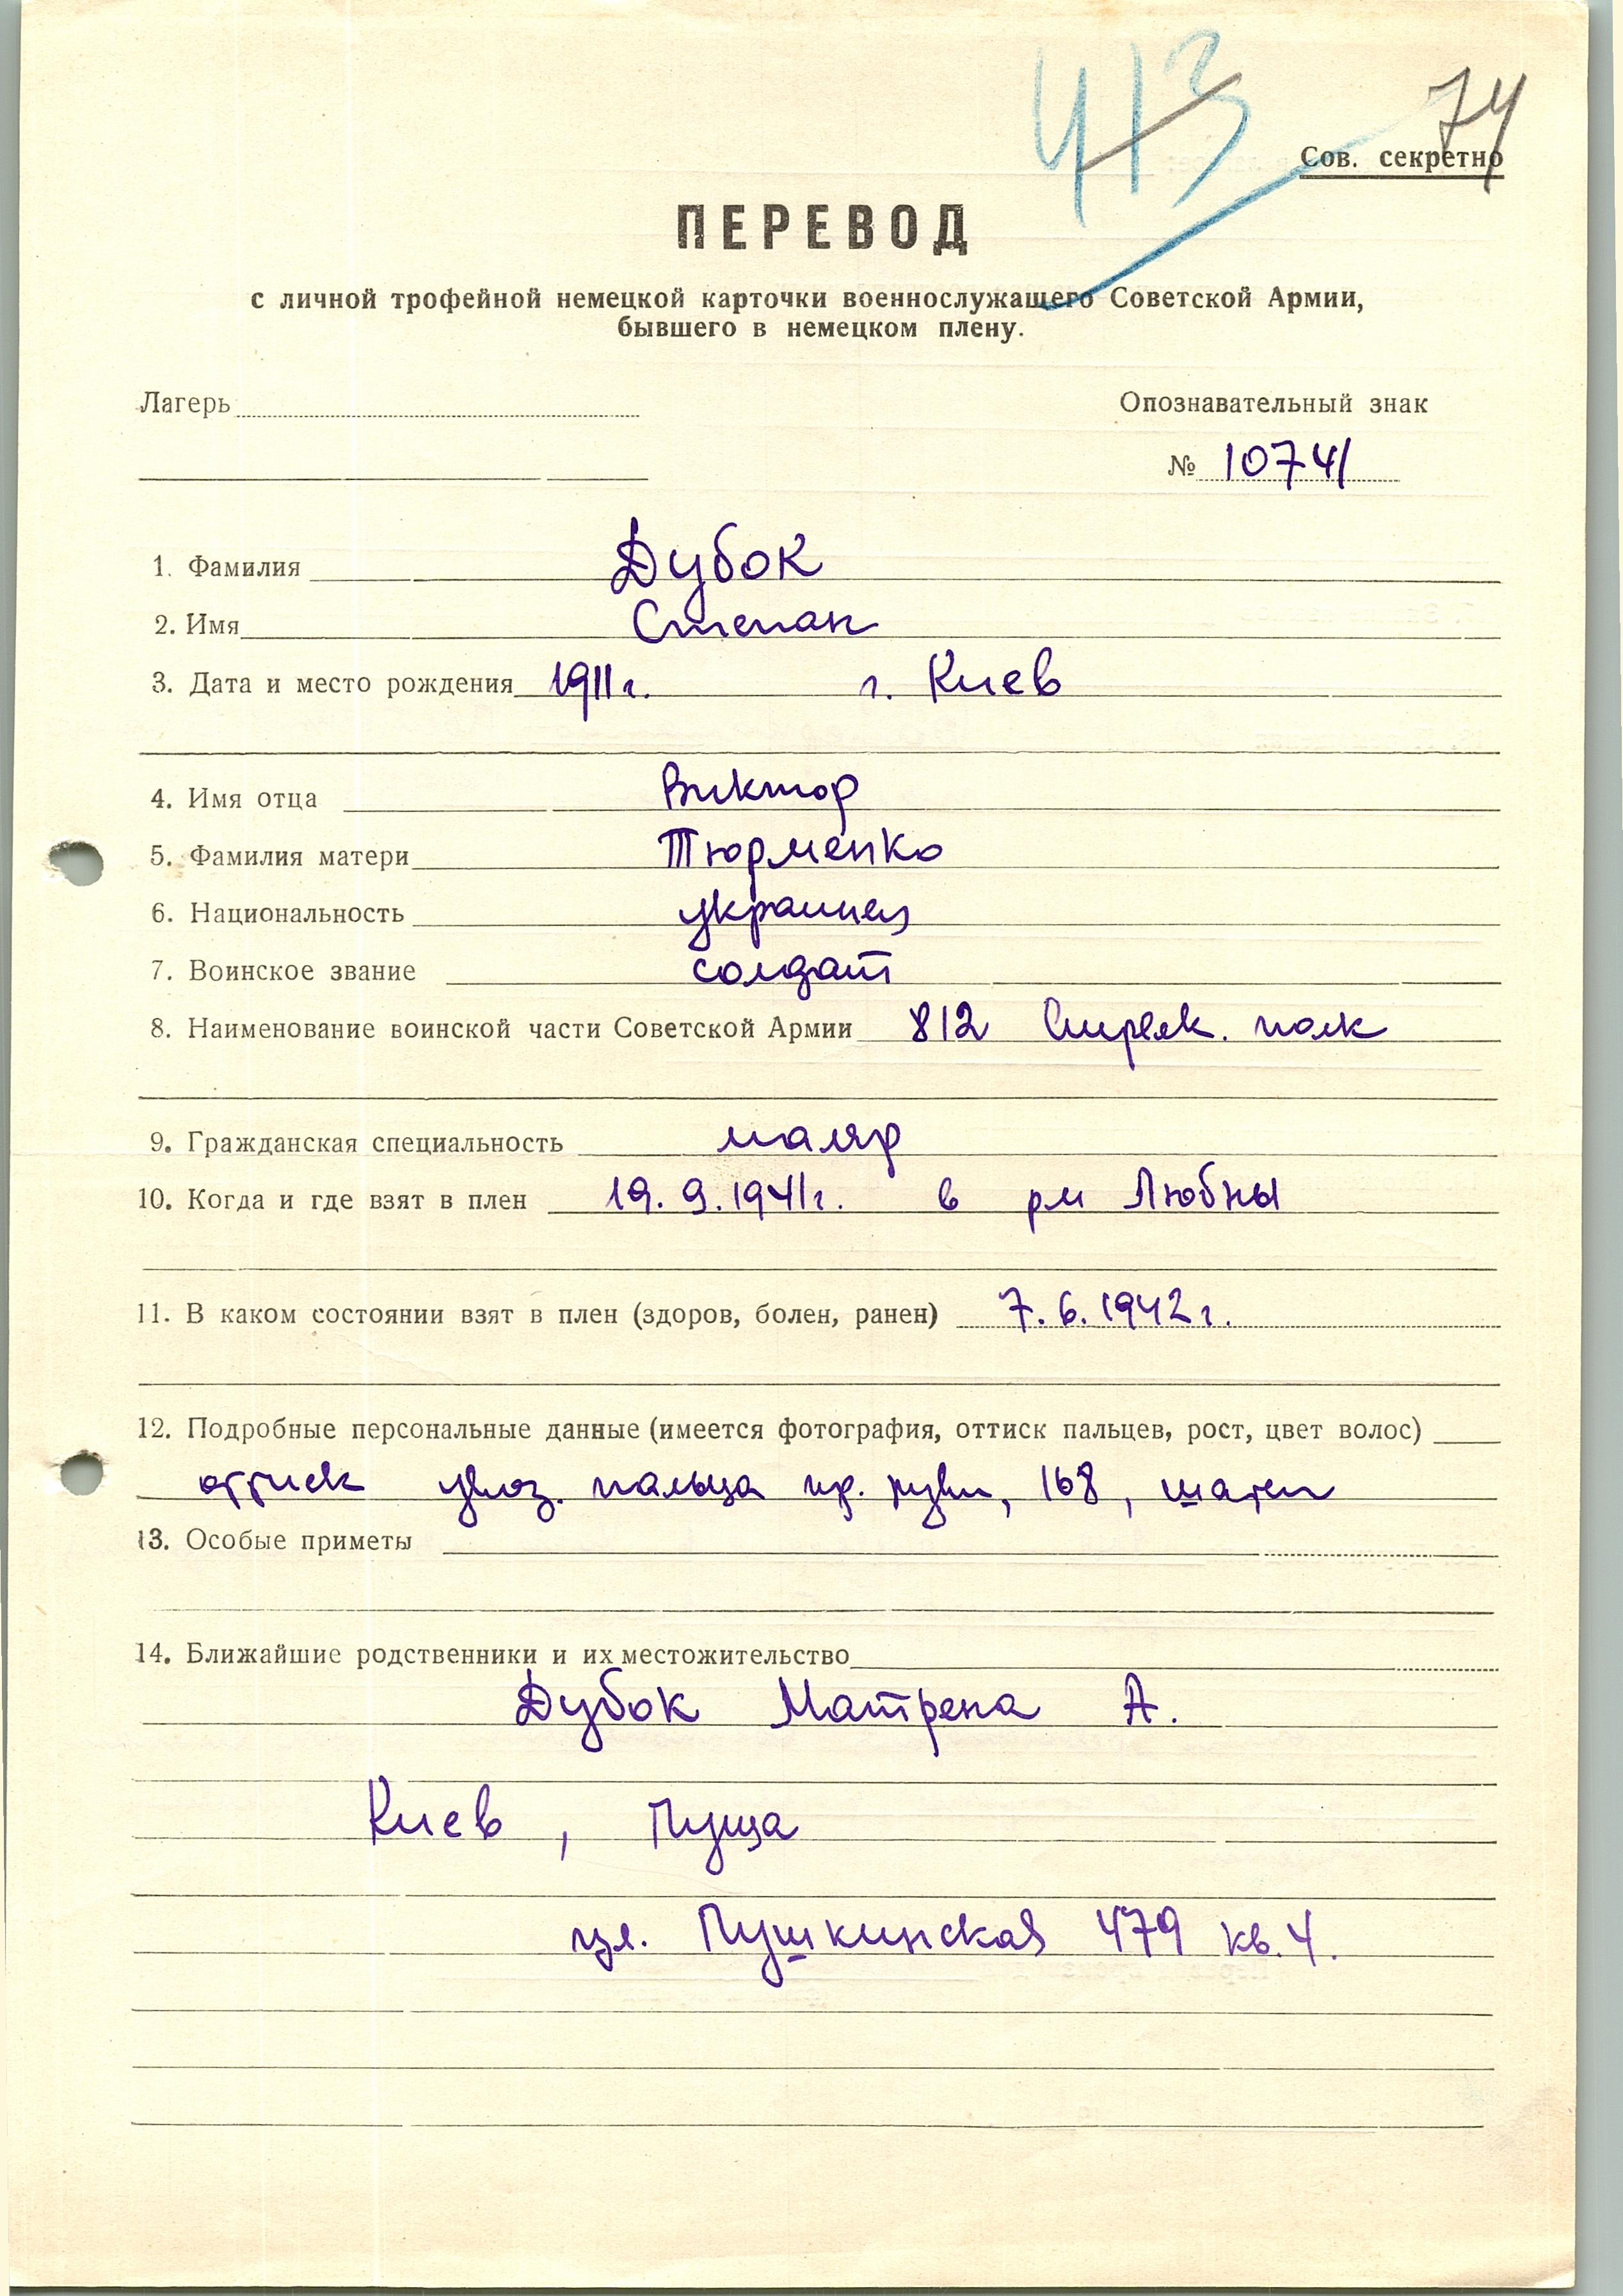 413
74
Сов. секретно
ПЕРЕВОД
с личной трофейной немецкой карточки военнослужащего Советской Армии,
бывшего в немецком плену.
Лагерь
Опознавательный знак
№ 10741
1. Фамилия Дубок
2. Имя Степан
3. Дата и место рождения 1911 г. г. Киев
4. Имя отца Виктор
5. Фамилия матери Тюрменко
6. Национальность украинец
7. Воинское звание солдат
8. Наименование воинской части Советской Армии 812 Стрелк. полк
9. Гражданская специальность маляр
10. Когда и где взят в плен 19. 9. 1941 г. в рм Любны
11. В каком состоянии взят в плен (здоров, болен, ранен) 7. 6. 1942 г.
12. Подробные персональные данные (имеется фотография, оттиск пальцев, рост, цвет волос)
оттиск указ. пальца пр. руки, 168, шатен
13. Особые приметы
14. Ближайшие родственники и их местожительство
Дубок Матрена А.
Киев, Пуща
ул. Пушкинская 479 кв. 4.